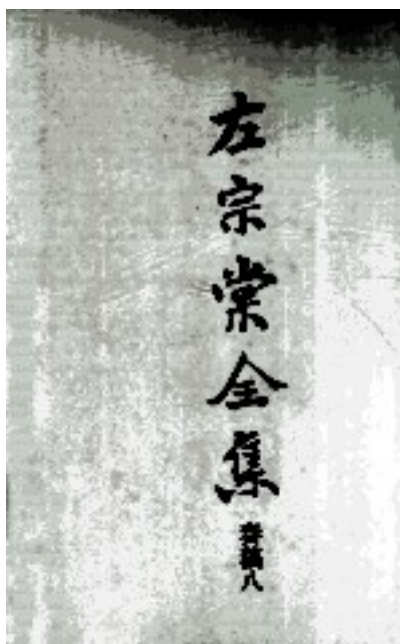 左宗棠全集
奏稿八